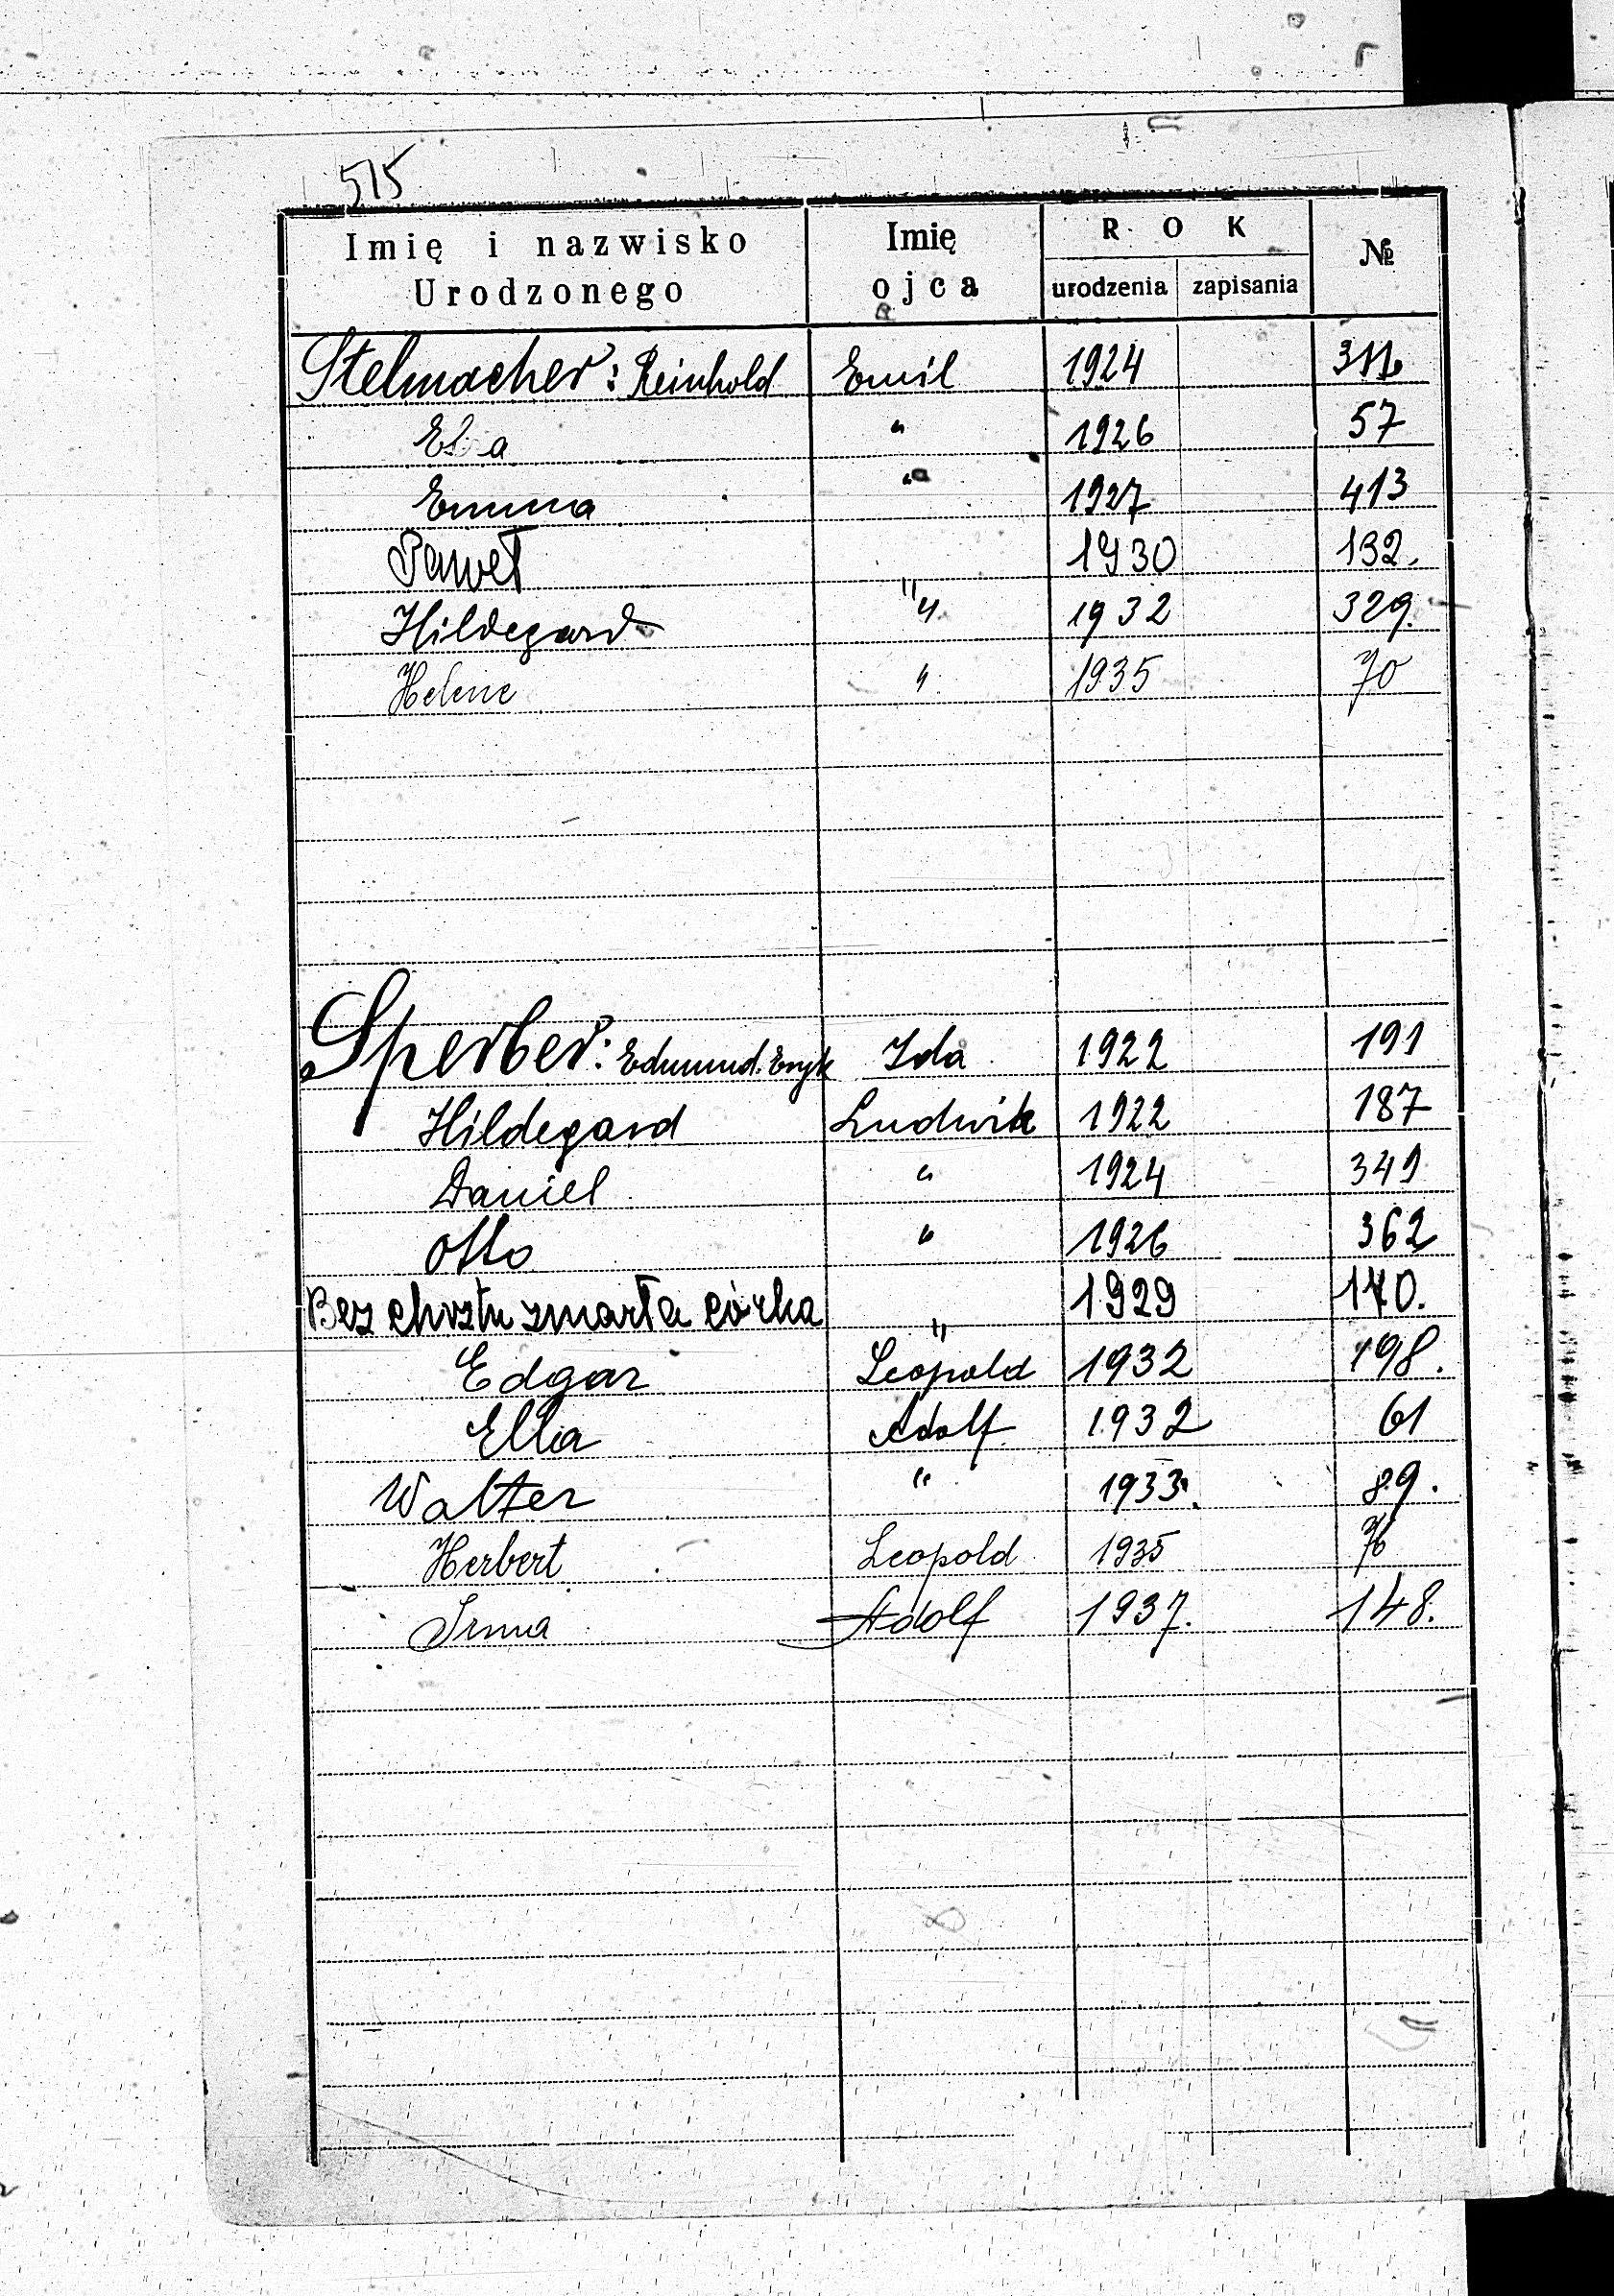 515
Imię i nazwisko Urodzonego Imię ojca ROK urodzenia zapisania №
Stelmacher: Reinhold Emil 1924
" 1926 57
Emma " 1927 413
Paweł " 1930 132.
Hildegard " 1932 329.
Helene " 1935 70
Sperber: Edmund Eryk Ida 1922 191
Hildegard Ludwik 1922 187
Daniel " 1924 349
Otto " 1926 362
Bez chrztu zmarła córka " 1929 170.
Edgar Leopold 1932 198.
Ella Adolf 1932 61
Walter " 1933. 89.
Herbert Leopold 1935 76
Irma Adolf 1937. 148.